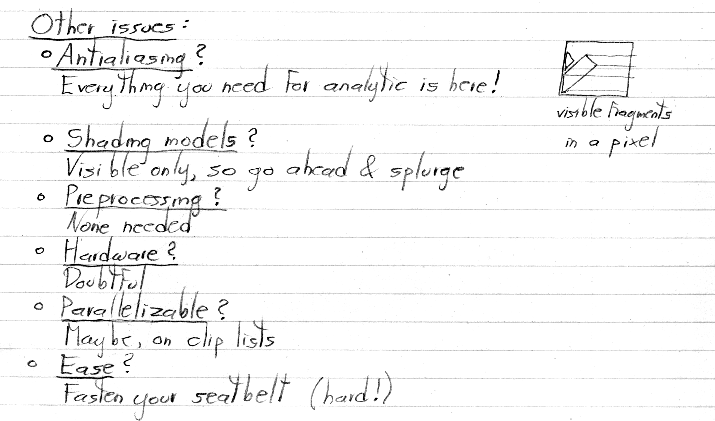 Other issues:
o Antialiasing?
Everything you need for analytic is here!
visible fragments
in a pixel
o Shading models?
Visible only, so go ahead & splurge
o Preprocessing?
None needed
o Hardware?
Doubtful
o Parallelizable?
Maybe, on clip lists
o Ease?
Fasten your seatbelt (hard!)